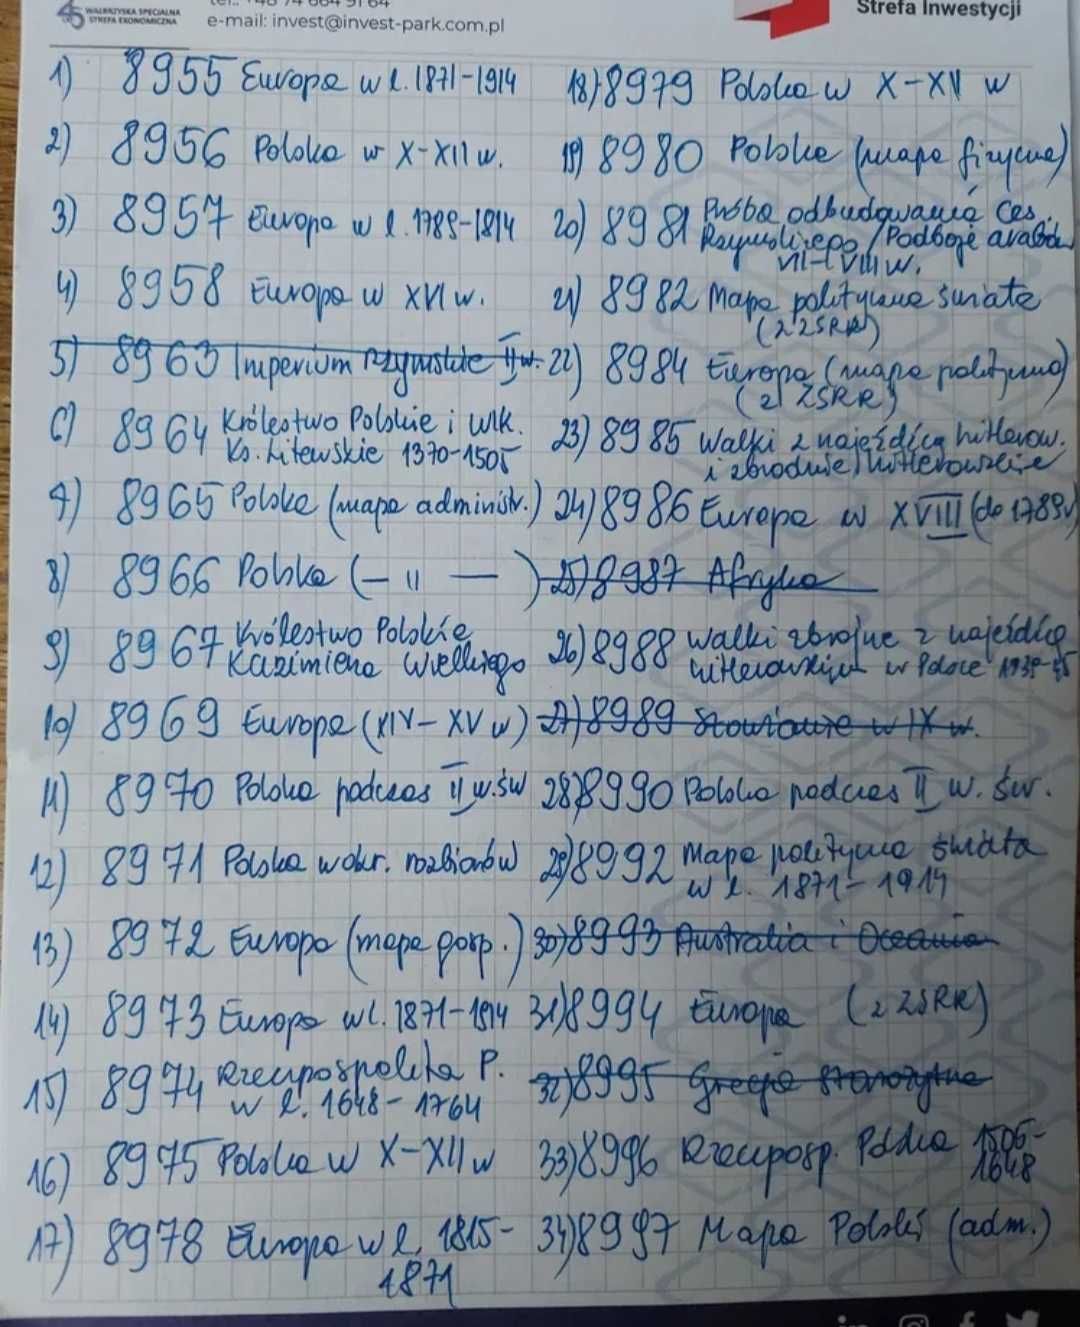 WAŁBRZYSKA SPECJALNA
STREFA EKONOMICZNA
e-mail: invest@invest-park.com.pl
Strefa Inwestycji
1) 8955 Europa w l. 1871-1914
2) 8956 Polska w X-XII w.
3) 8957 Europa w l. 1789-1814
4) 8958 Europa w XVI w.
5) 8963 Imperium rzymskie II w.
6) 8964 Królestwo Polskie i Wlk.
Ks. Litewskie 1370-1505
7) 8965 Polska (mapa administr.)
8) 8966 Polska (— 11 —)
9) 8967 Królestwo Polskie
Kazimierza Wielkiego
10) 8969 Europa (XIV-XV w)
11) 8970 Polska podczas II w.św
12) 8971 Polska w okr. rozbiorów
13) 8972 Europa (mapa gosp.)
14) 8973 Europa w l. 1871-1914
15) 8974 Rzeczpospolita P.
w l. 1648-1764
16) 8975 Polska w X-XII w
17) 8978 Europa w l. 1815-
1871
18) 8979 Polska w X-XII w
19) 8980 Polska (mapa fizyczna)
20) 8981 Próba odbudowania Ces.
Rzymskiego/Podboje arabów
VII-VIII w.
21) 8982 Mapa polityczna świata
(z ZSRR)
22) 8984 Europa (mapa polityczna)
(z ZSRR)
23) 8985 Walki z najeźdźcą hitlerow.
i zbrodnie hitlerowskie
24) 8986 Europa w XVIII (do 1789r)
25) 8987 Afryka
26) 8988 Walki zbrojne z najeźdźcą
hitlerowskim w Polsce 1939-45
27) 8989 Słowianie w IX w.
28) 8990 Polska podczas II w. św.
29) 8992 Mapa polityczna świata
w l. 1871-1914
30) 8993 Australia i Oceania
31) 8994 Europa (z ZSRR)
32) 8995 Grecja starożytna
33) 8996 Rzeczposp. Polska 1506-
1648
34) 8997 Mapa Polski (adm.)